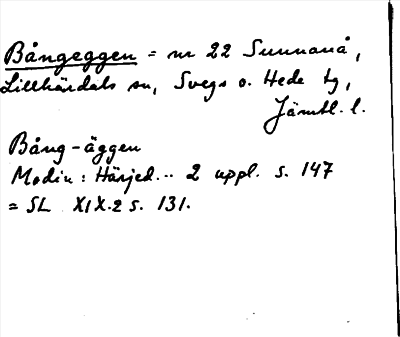 Bångeggen = nr 22 Sunnanå,
Lillhärdals sn, Svegs o. Hede tg,
Jämtl. l.
Bång-äggen
Modin: Härjed... 2 uppl. s. 147
= SL XIX.2 s. 131.